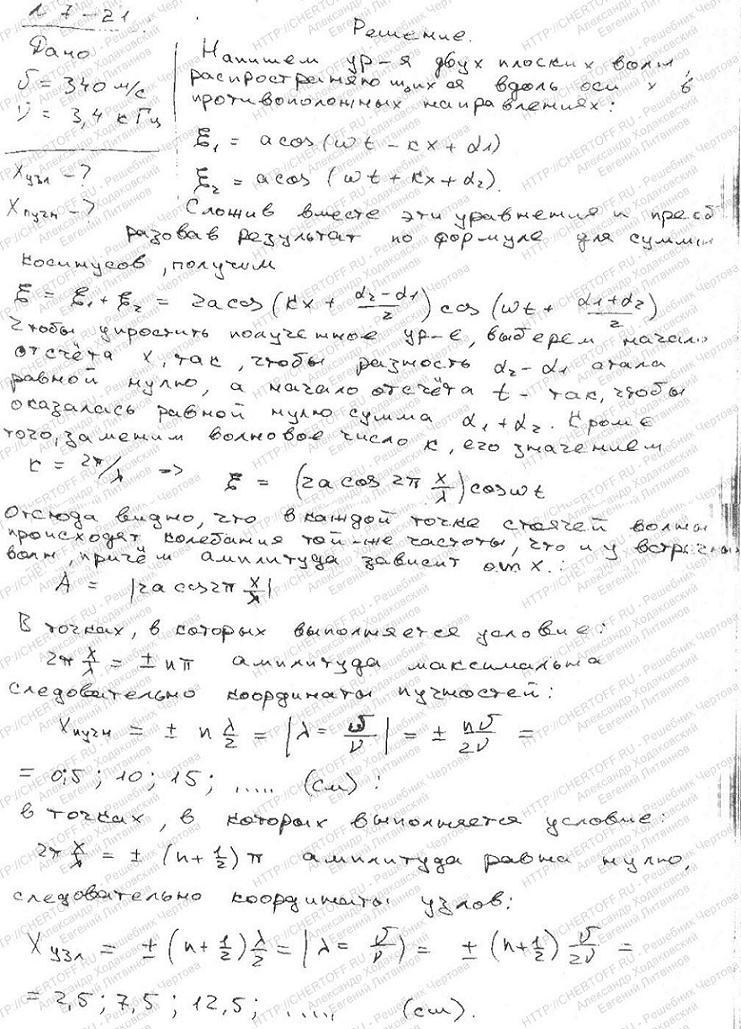 № 7-21
Решение.
Дано
υ = 340 м/с
ν = 3,4 кГц
Xузл - ?
Xпучн - ?
Напишем ур-я двух плоских волн,
распространяющихся вдоль оси x в
противоположных направлениях:
ξ₁ = a cos (ωt - kx + α1)
ξ₂ = a cos (ωt + kx + α₂).
Сложив вместе эти уравнения и преоб
разовав результат по формуле для суммы
косинусов, получим
ξ = ξ₁ + ξ₂ = 2a cos (kx + (α₂-α1)/2) cos (ωt + (α1+α2)/2)
Чтобы упростить полученное ур-е, выберем начало
отсчёта x, так, чтобы разность α₂ - α1 стала
равной нулю, а начало отсчёта t - так, чтобы
оказалась равной нулю сумма α₁ + α₂. Кроме
того, заменим волновое число k, его значением
k = 2π/λ => ξ = (2a cos 2π x/λ) cos ωt
Отсюда видно, что в каждой точке стоячей волны
происходят колебания той-же частоты, что и у встречных
волн, причём амплитуда зависит от x.:
A = |2a cos 2π x/λ|
В точках, в которых выполняется условие:
2π x/λ = ± nπ амплитуда максимальна
следовательно координаты пучностей:
Xпучн = ± n λ/2 = |λ = υ/ν| = ± nυ/2ν =
= 0;5; 10; 15; ..... (см):
в точках, в которых выполняется условие:
2π x/λ = ± (n+½)π амплитуда равна нулю,
следовательно координаты узлов:
Xузл = ± (n+½) λ/2 = |λ = υ/ν) = ± (n+½) υ/2ν =
= 2,5; 7,5; 12,5; ..... (см).
HTTP://CHERTOFF.RU - Решебник Чертова
Александр Ходаковский
Евгений Литвинов